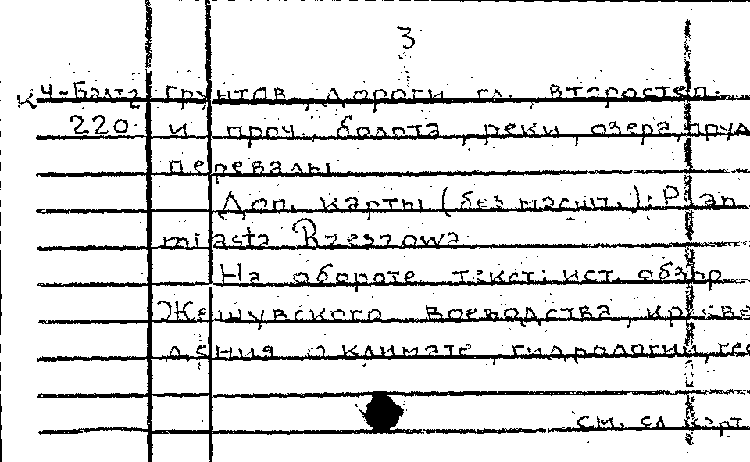 3
К4-Балт2 грунтов, дороги гл., второстеп.
220 и проч., болота, реки, озера, пруд
перевалы
Доп. карты (без масшт.): Plan
miasta Rzeszowa
На обороте текст: ист. обзор
Жешувского воеводства, кр. све
дения о климате, гидрологии, гео
см. сл. карт